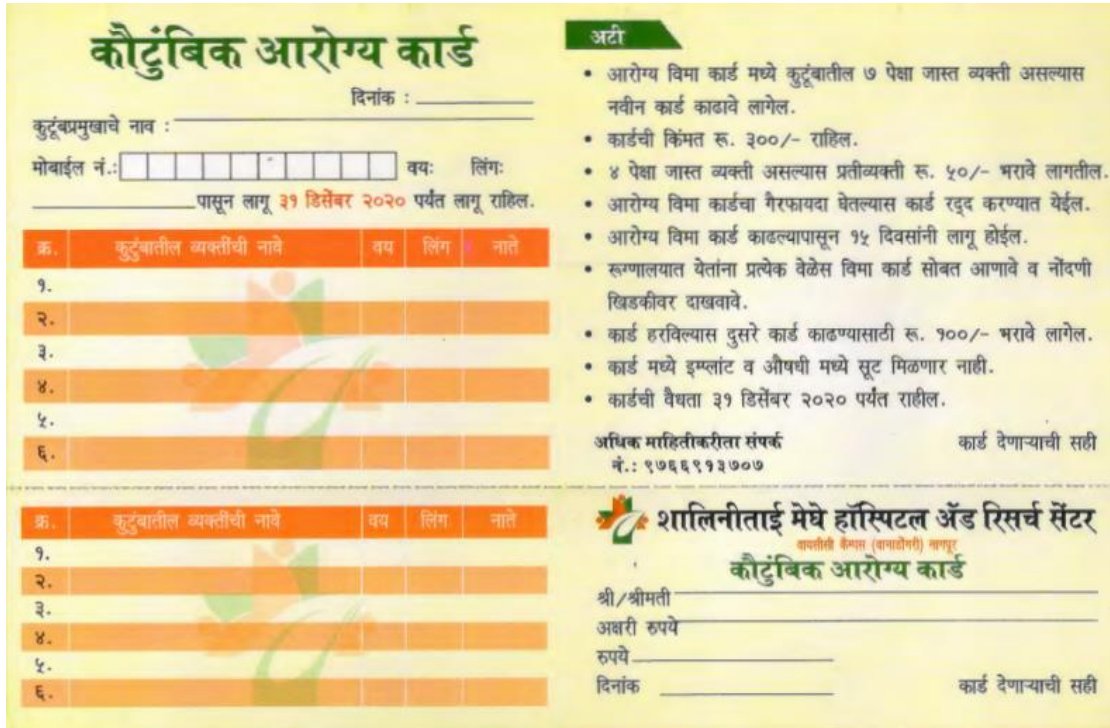 कौटुंबिक आरोग्य कार्ड
दिनांक :
कुटूंबप्रमुखाचे नाव :
मोबाईल नं.: वय: लिंग:
पासून लागू ३१ डिसेंबर २०२० पर्यंत लागू राहिल.
क्र. कुटुंबातील व्यक्तींची नावे वय लिंग नाते
१.
२.
३.
४.
५.
६.
अटी
• आरोग्य विमा कार्ड मध्ये कुटूंबातील ७ पेक्षा जास्त व्यक्ती असल्यास
नवीन कार्ड काढावे लागेल.
• कार्डची किंमत रू. ३००/- राहिल.
• ४ पेक्षा जास्त व्यक्ती असल्यास प्रतीव्यक्ती रू. ५०/- भरावे लागतील.
• आरोग्य विमा कार्डचा गैरफायदा घेतल्यास कार्ड रद्द करण्यात येईल.
• आरोग्य विमा कार्ड काढल्यापासून १५ दिवसांनी लागू होईल.
• रूग्णालयात येतांना प्रत्येक वेळेस विमा कार्ड सोबत आणावे व नोंदणी
खिडकीवर दाखवावे.
• कार्ड हरविल्यास दुसरे कार्ड काढण्यासाठी रू. १००/- भरावे लागेल.
• कार्ड मध्ये इम्प्लांट व औषधी मध्ये सूट मिळणार नाही.
• कार्डची वैधता ३१ डिसेंबर २०२० पर्यंत राहील.
अधिक माहितीकरीता संपर्क कार्ड देणाऱ्याची सही
नं.: ९७६६९१३७०७
क्र. कुटुंबातील व्यक्तींची नावे वय लिंग नाते
१.
२.
३.
४.
५.
६.
शालिनीताई मेघे हॉस्पिटल अँड रिसर्च सेंटर
वायसीसी कॅम्पस (वानाडोंगरी) नागपूर
कौटुंबिक आरोग्य कार्ड
श्री/श्रीमती
अक्षरी रुपये
रुपये
दिनांक कार्ड देणाऱ्याची सही